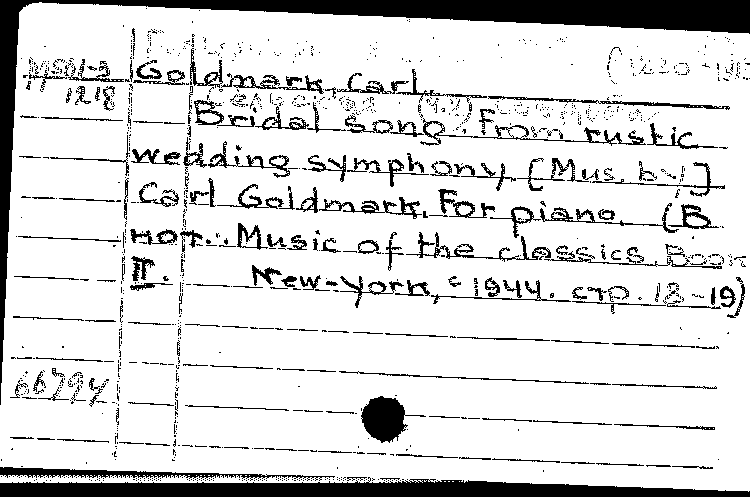 Goldmark, Carl.
1218
Bridal song. From rustic
wedding symphony. [Mus. by]
Carl Goldmark. For piano. (В
нот.: Music of the classics. Book
II. New-York, c 1944. стр. 18-19)
66794